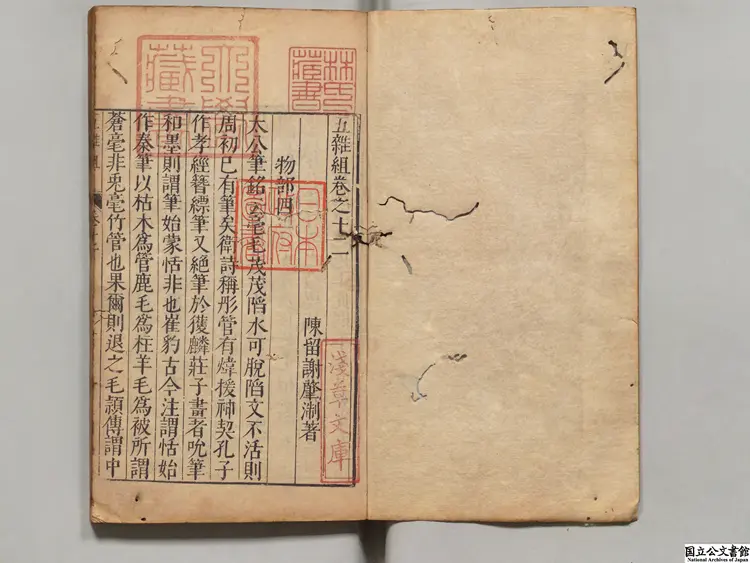 五雜組卷之十二
陳留謝肇淛著
物部四
太公筆銘云毫毛茂茂陷水可脫陷文不活則
周初已有筆矣衛詩稱彤管有煒援神契孔子
作孝經簪縹筆又絕筆於獲麟莊子畫者吮筆
和墨則謂筆始蒙恬非也崔豹古今注謂恬始
作秦筆以枯木爲管鹿毛爲柱羊毛爲被所謂
蒼毫非兎毫竹管也果爾則退之毛穎傳謂中
五雜組
林氏藏書
日本政府圖書
淺草文庫
國立公文書館
National Archives of Japan